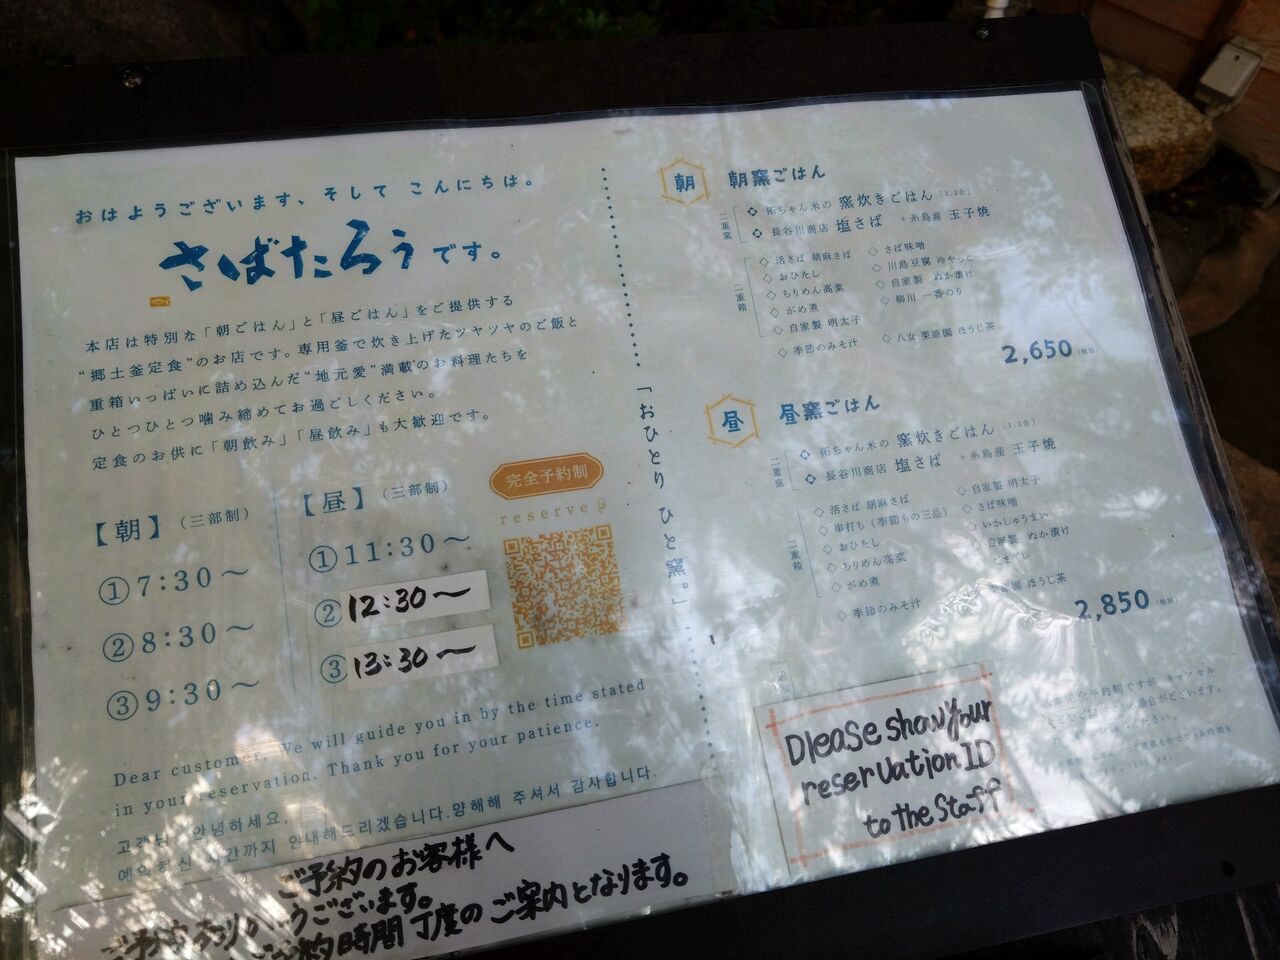 おはようございます、そして こんにちは。
さばたろうです。
本店は特別な「朝ごはん」と「昼ごはん」をご提供する
“郷土釜定食”のお店です。専用釜で炊き上げたツヤツヤのご飯と
重箱いっぱいに詰め込んだ“地元愛”満載のお料理たちを
ひとつひとつ噛み締めてお過ごしください。
定食のお供に「朝飲み」「昼飲み」も大歓迎です。
【朝】（三部制）
①7:30～
②8:30～
③9:30～
【昼】（三部制）
①11:30～
②12:30～
③13:30～
完全予約制
reserve
Dear customer, We will guide you in by the time stated
in your reservation. Thank you for your patience.
고객님, 안녕하세요,
예약하신 시간까지 안내해드리겠습니다.양해해 주셔서 감사합니다.
ご予約のお客様へ
ご予約ありがとうございます。
ご予約時間丁度のご案内となります。
「おひとり ひと窯。」
朝 朝窯ごはん
二重窯
◇ 拓ちゃん米の 窯炊きごはん［1.2合］
◇ 長谷川商店 塩さば ＋糸島産 玉子焼
二重箱
◇ 活さば 胡麻さば
◇ おひたし
◇ ちりめん高菜
◇ がめ煮
◇ 自家製 明太子
◇ さば味噌
◇ 川島豆腐 冷やっこ
◇ 自家製 ぬか漬け
◇ 柳川 一番のり
◇ 季節のみそ汁
◇ 八女 栗原園 ほうじ茶
2,650
昼 昼窯ごはん
二重窯
◇ 拓ちゃん米の 窯炊きごはん［1.2合］
◇ 長谷川商店 塩さば ＋糸島産 玉子焼
二重箱
◇ 活さば 胡麻さば
◇ 串打ち（季節もの三品）
◇ おひたし
◇ ちりめん高菜
◇ がめ煮
◇ 自家製 明太子
◇ さば味噌
◇ いかしゅうまい
◇ 自家製 ぬか漬け
◇ 季節のみそ汁
ほうじ茶
2,850
Please show your
reservation ID
to the staff
完全予約制ですが、キャンセル
場合がございます。
ください。